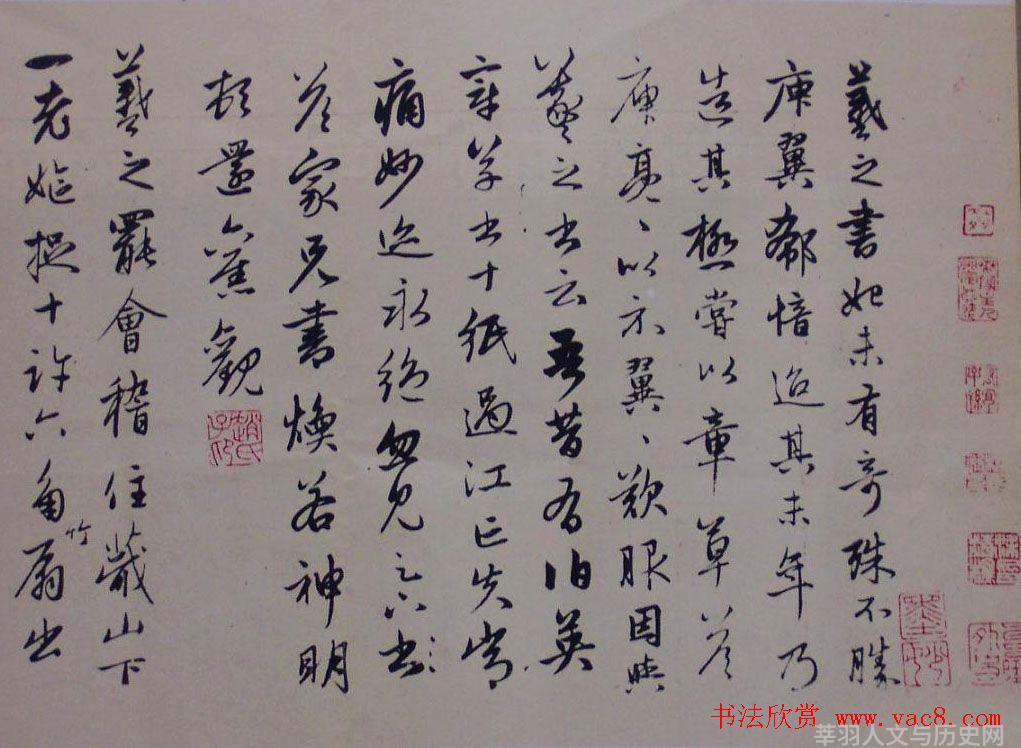 羲之書始未有奇殊不勝
庾翼郗愔迨其末年乃
造其極嘗以章草答
庾亮、以示翼、歎服因與
羲之書云吾昔有伯英
章草書十紙過江亡失常
痛妙迹永絕忽見足下書
答家兄書煥若神明
頓還舊觀
趙氏子昂
羲之罷會稽住蕺山下
一老嫗捉十許六角竹扇出
书法欣赏 www.vac8.com
莘羽人文与历史网